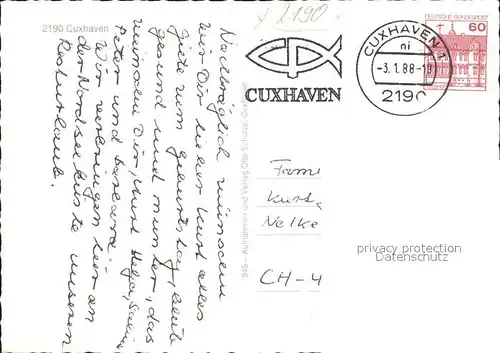 2190 Cuxhaven
x 2190
Nachträglich wünschen
wir Dir lieber Kurt alles
Gute zum Geburtstag, bleibe
gesund und munter, das
wünschen Dir, Kurt Helga,
Peter und Barbara.
Wir verbringen hier an
der Nordseeküste unseren
Resturlaub.
945 - Aufnahmen und Verlag Otto Schulze, Cuxhaven
CUXHAVEN
CUXHAVEN 1
ni
-3.1.88-10
2190
DEUTSCHE BUNDESPOST
60
Fami
Kurt
Nelke
CH-4
privacy protection
Datenschutz